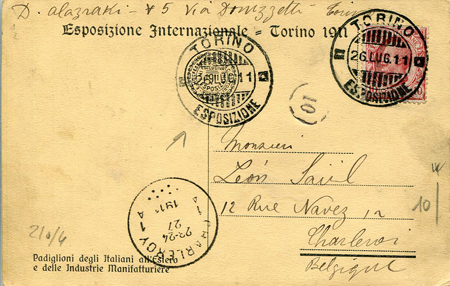 D. alazraki - 5 Via Donizzetti Turin
Esposizione Internazionale = Torino 1911
TORINO
26.LUG.11
ESPOSIZIONE
TORINO
26.LUG.11
ESPOSIZIONE
10
Monsieur
Léon Saül
12 Rue Navez 12
Charleroi
Belgique
10
CHARLEROY
1 A
23-24
27
1911
Padiglioni degli Italiani all'Estero
e delle Industrie Manifatturiere